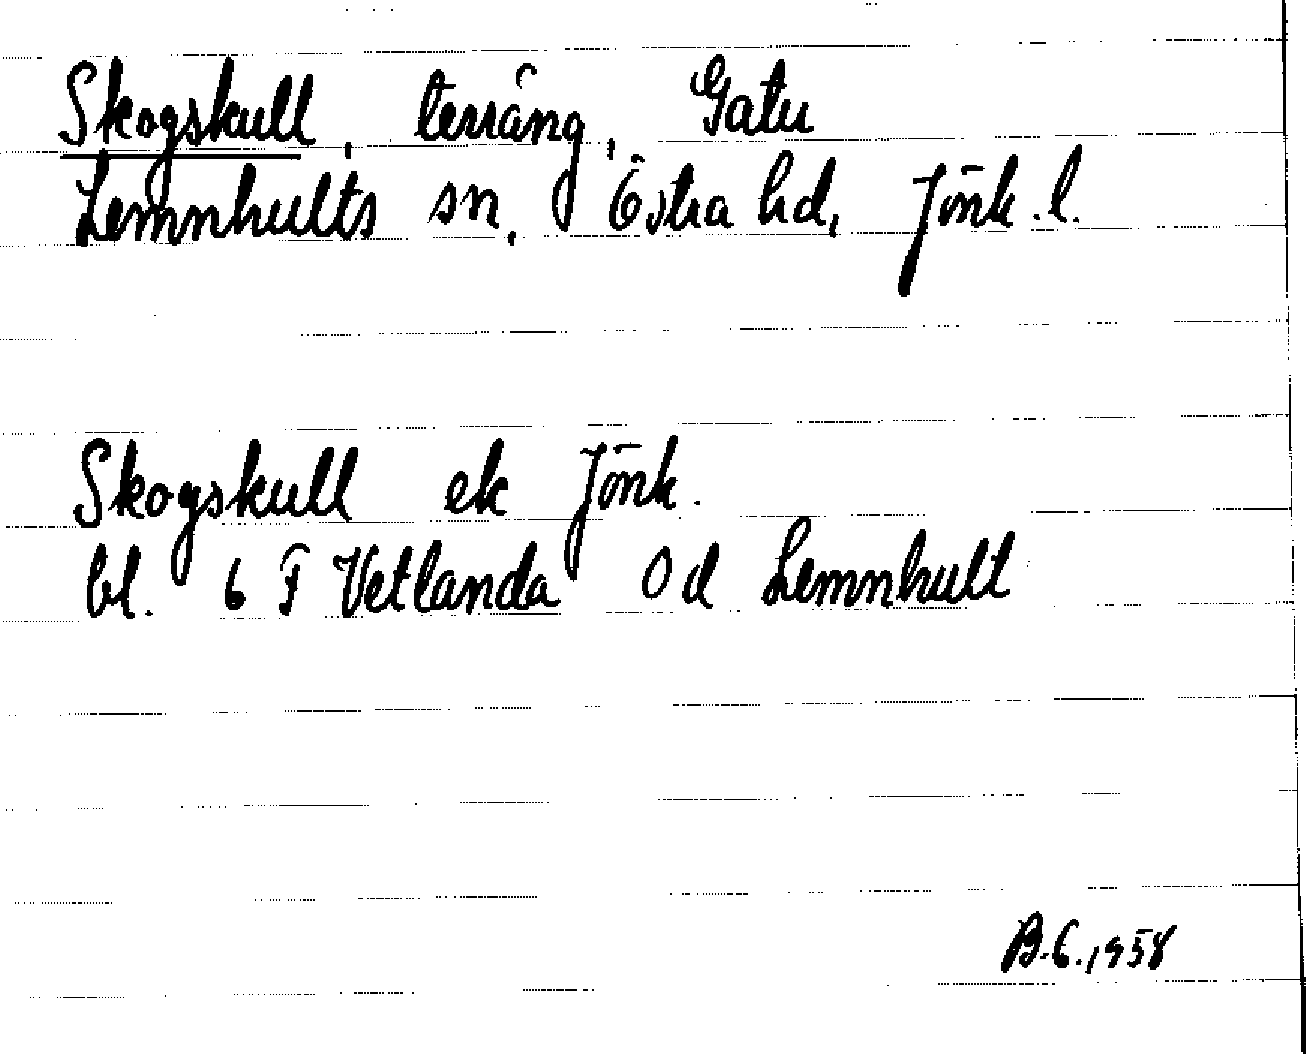 Skogskull, terräng, Gatu
Lemnhults sn, Östra hd, Jönk.l.
Skogskull ek Jönk.
bl. 6 F Vetlanda 0 d Lemnhult
B.G.1958